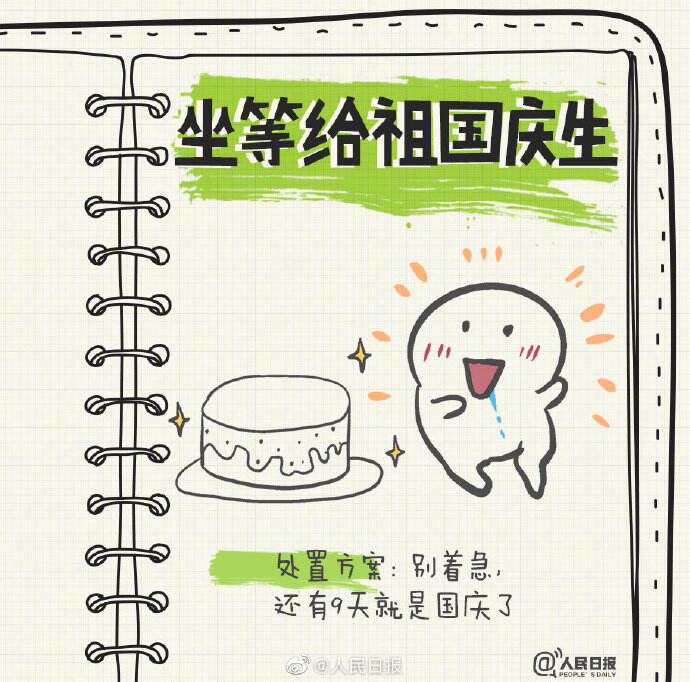 坐等给祖国庆生
处置方案：别着急，
还有9天就是国庆了
@人民日报
@人民日报
PEOPLE'S DAILY